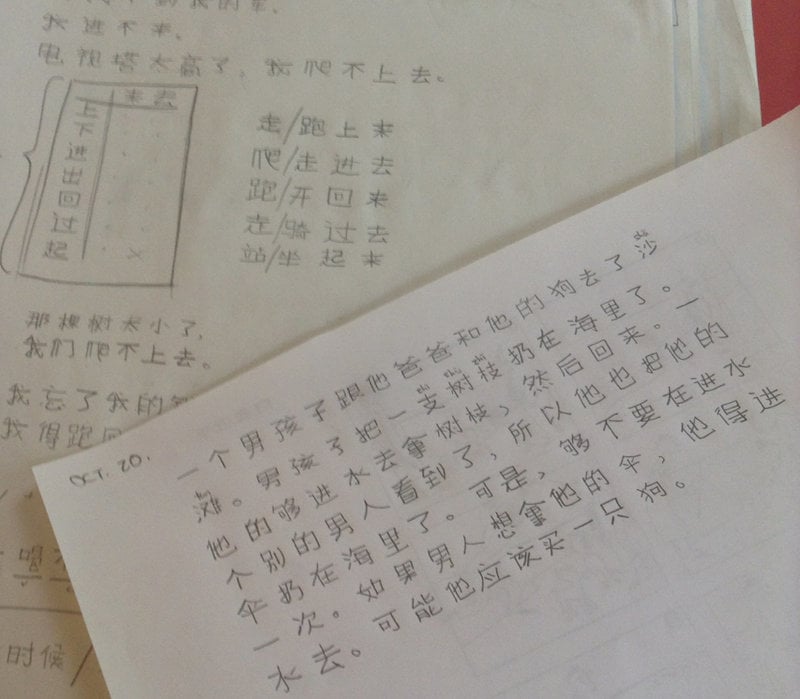 到我的车.
我进不来.
电视塔太高了, 我爬不上去。
来去
上
下
进
出
回
过
起 ×
走/跑上来
爬/走进去
跑/开回来
走/骑过去
站/坐起来
那棵树太小了,
我们爬不上去。
我忘了我的
我得跑回
喝
时候/
OCT. 20.
一个男孩子跟他爸爸和他的狗去了沙
滩。男孩子把一支树枝扔在海里了。
他的够进水去拿树枝, 然后回来。一
个别的男人看到了, 所以他也把他的
伞扔在海里了。可是, 够不要在进水
一次。如果男人想拿他的伞, 他得进
水去。可能他应该买一只狗。